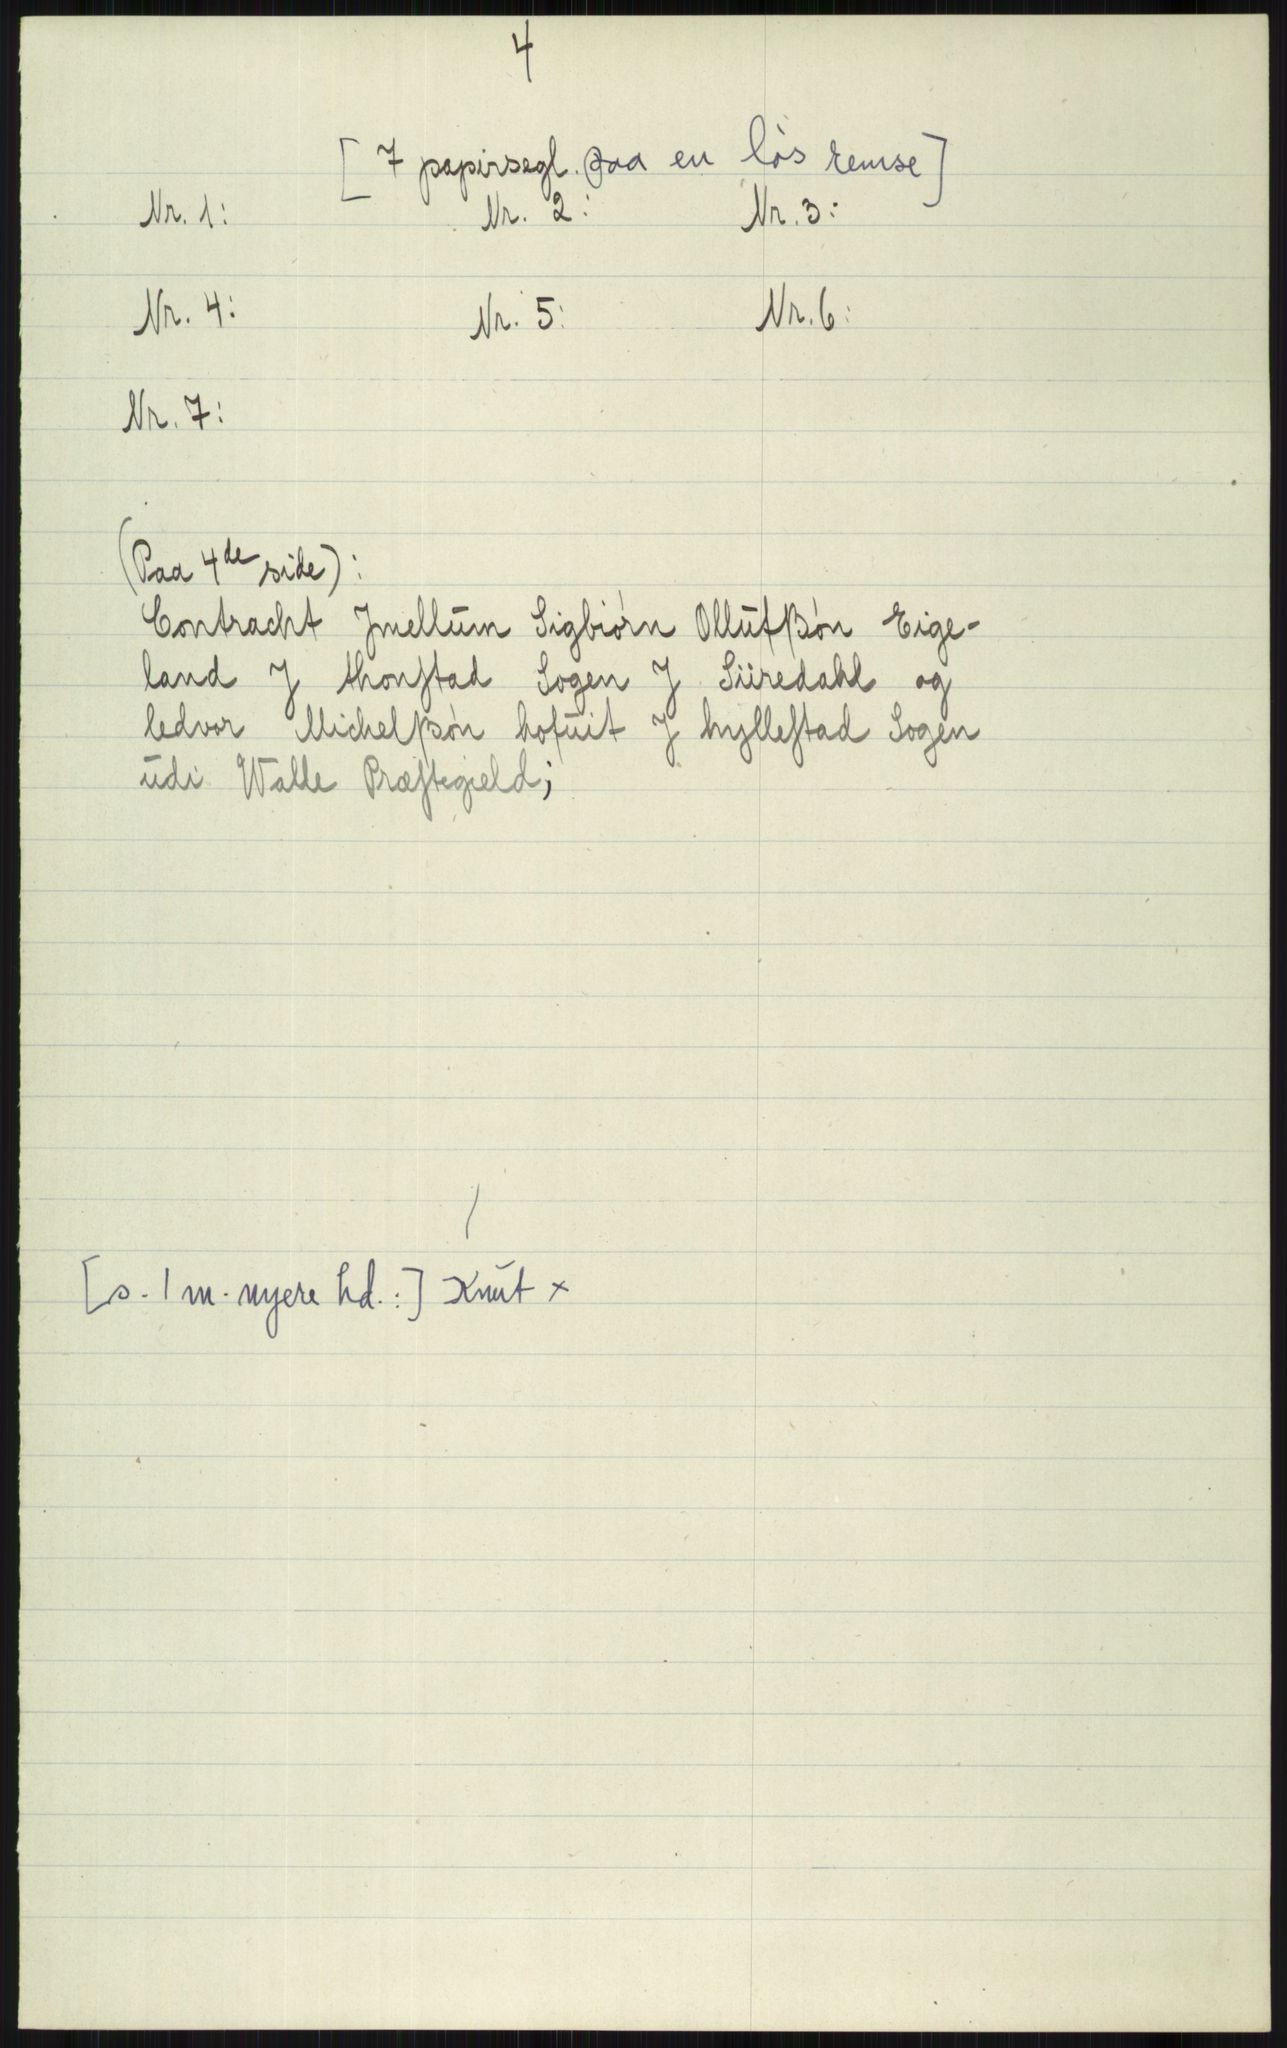 4
[7 papirsegl. paa en løs remse]
Nr. 1: Nr. 2: Nr. 3:
Nr. 4: Nr. 5: Nr. 6:
Nr. 7:
(Paa 4de side):
Contracht Jmellŭm Sigbiórn Ollŭfſßón Eige-
land J thonſtad Sogen J Siiredahl og
ledvor Michelſßón hofŭit J hylleſtad Sogen
ŭdi Walle Præſtegield;
[s. 1 m. nyere hd.:] Knŭt x